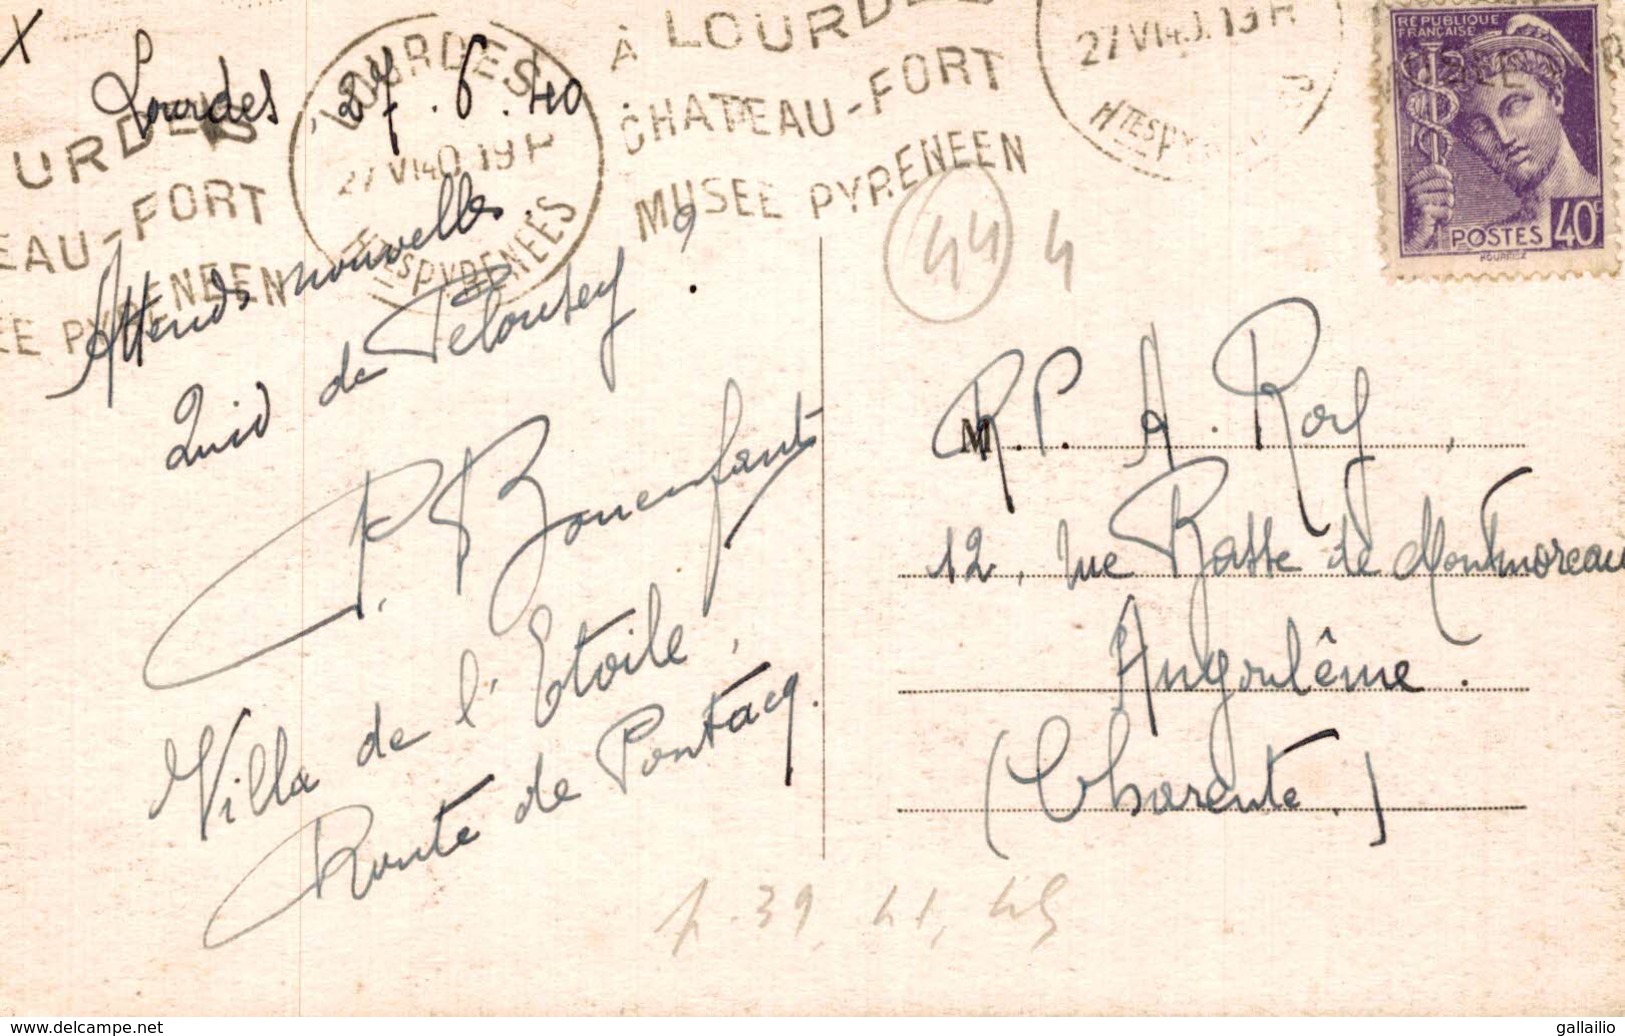 Lourdes 27.6.40
LOURDES
27 VI 40. 19 H
Htes PYRENEES
À LOURDES
CHATEAU-FORT
MUSEE PYRENEEN
27 VI 40. 19 H
Htes PYR
URDES
EAU-FORT
EE PYRENEEN
RÉPUBLIQUE
FRANÇAISE
POSTES 40c
Attends nouvelles
Quid de Pelousey ?
P. Bonenfant
Villa de l'Etoile,
Route de Pontacq.
44 4
M
R.P. A. Roy,
12, rue Basse de Montmoreau
Angoulême.
(Charente.)
p. 39, 41, 45
www.delcampe.net
gallailio